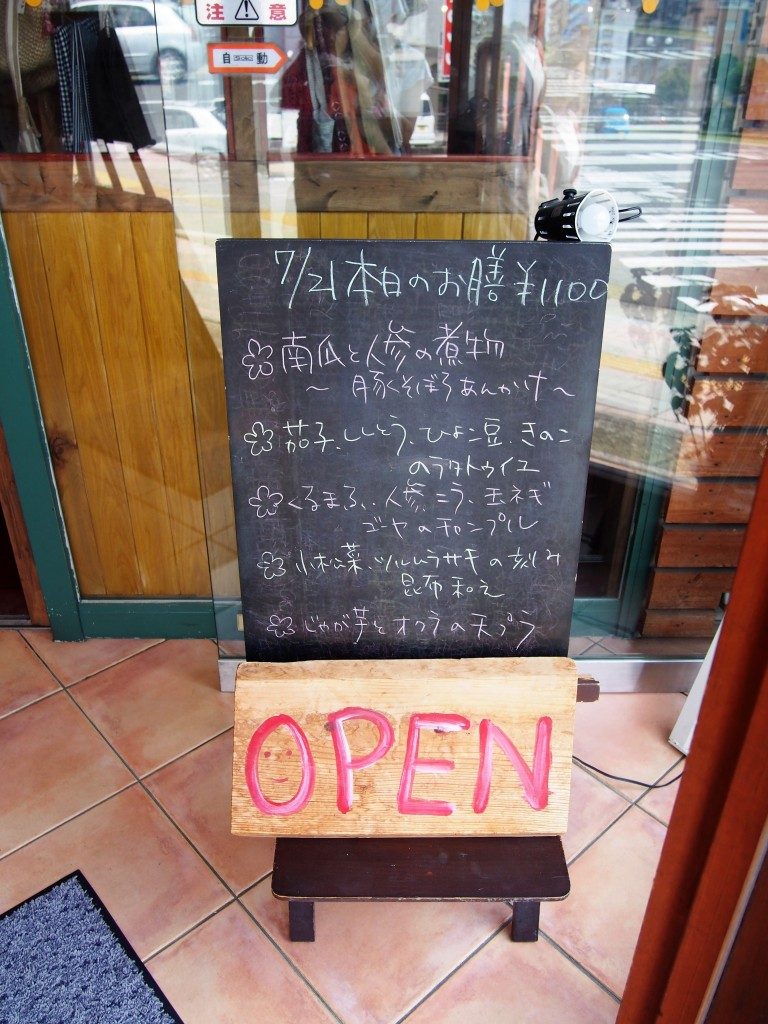 注 意
自動
7/21本日のお膳 ¥1100
南瓜と人参の煮物
〜 豚そぼろあんかけ〜
茄子、ししとう、ひよこ豆、きのこ
のラタトゥイユ
くるまふ、人参、ニラ、玉ネギ
ゴーヤのチャンプル
小松菜、ツルムラサキの刻み
昆布和え
じゃが芋とオクラの天プラ
OPEN